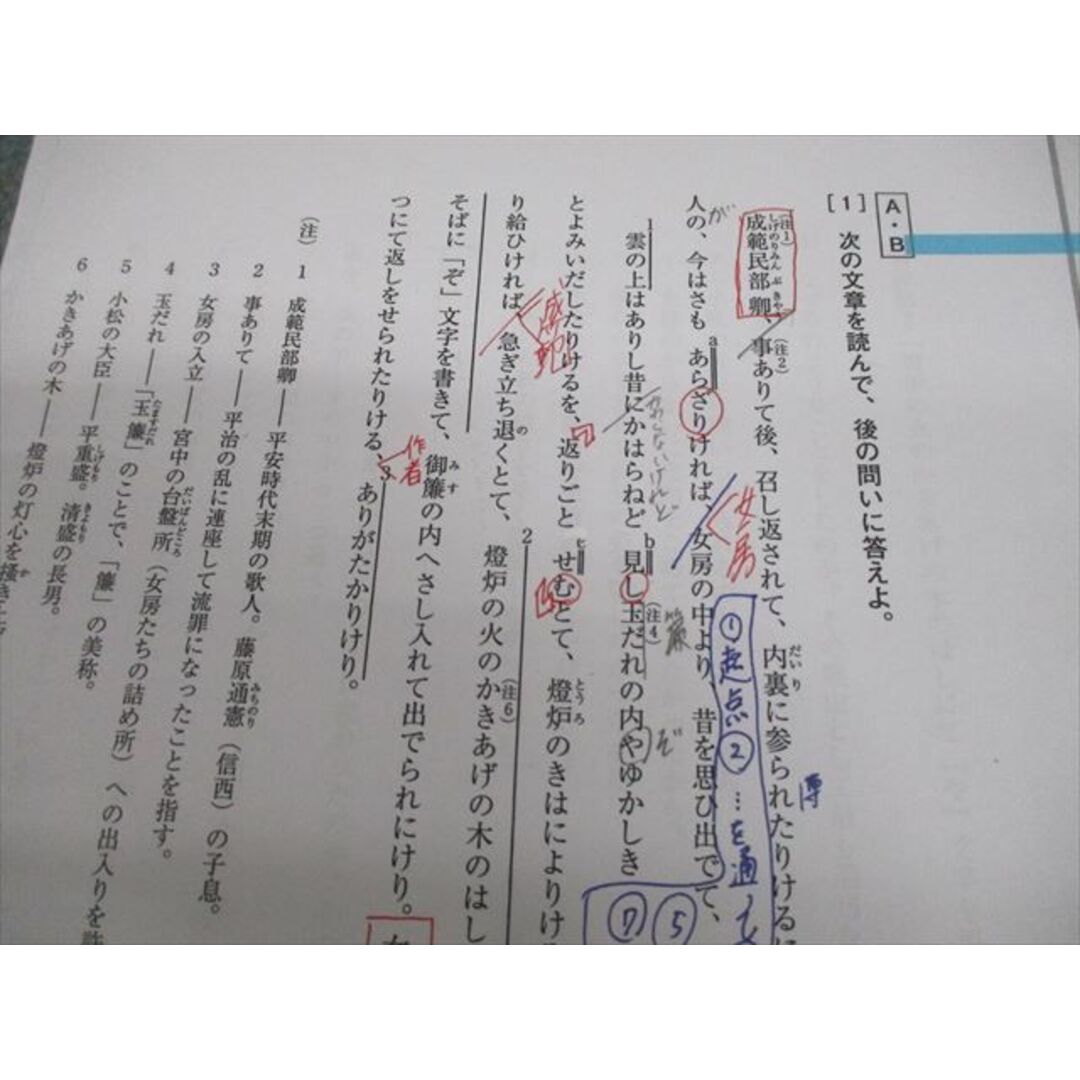 A・B
[1] 次の文章を読んで、後の問いに答えよ。
(注1)
成範民部卿、事ありて後、召し返されて、内裏に参られたりけるに
しげのりみんぶきやう
(注2)
だいり
①起点②…を通
人の、今はさもあらざりければ、女房の中より、昔を思ひ出でて、
が
a
女房
1
雲の上はありし昔にかはらねど見し玉だれの内やゆかしき
b
(注4)
簾
ぞ
⑦⑤
とよみいだしたりけるを、返りごとせむとて、燈炉のきはによりけ
とうろ
り給ひければ、急ぎ立ち退くとて、燈炉の火のかきあげの木のはし
成範
の
2
(注6)
そばに「ぞ」文字を書きて、御簾の内へさし入れて出でられにけり。
みす
つにて返しをせられたりける、ありがたかりけり。
作者
3
(注)
1 成範民部卿――平安時代末期の歌人。藤原通憲(信西)の子息。
みちのり
2 事ありて――平治の乱に連座して流罪になったことを指す。
3 女房の入立――宮中の台盤所(女房たちの詰め所)への出入りを
だいばんどころ
4 玉だれ――「玉簾」のことで、「簾」の美称。
たますだれ
5 小松の大臣――平重盛。清盛の長男。
しげもり
きよもり
6 かきあげの木――燈炉の灯心を掻き
か